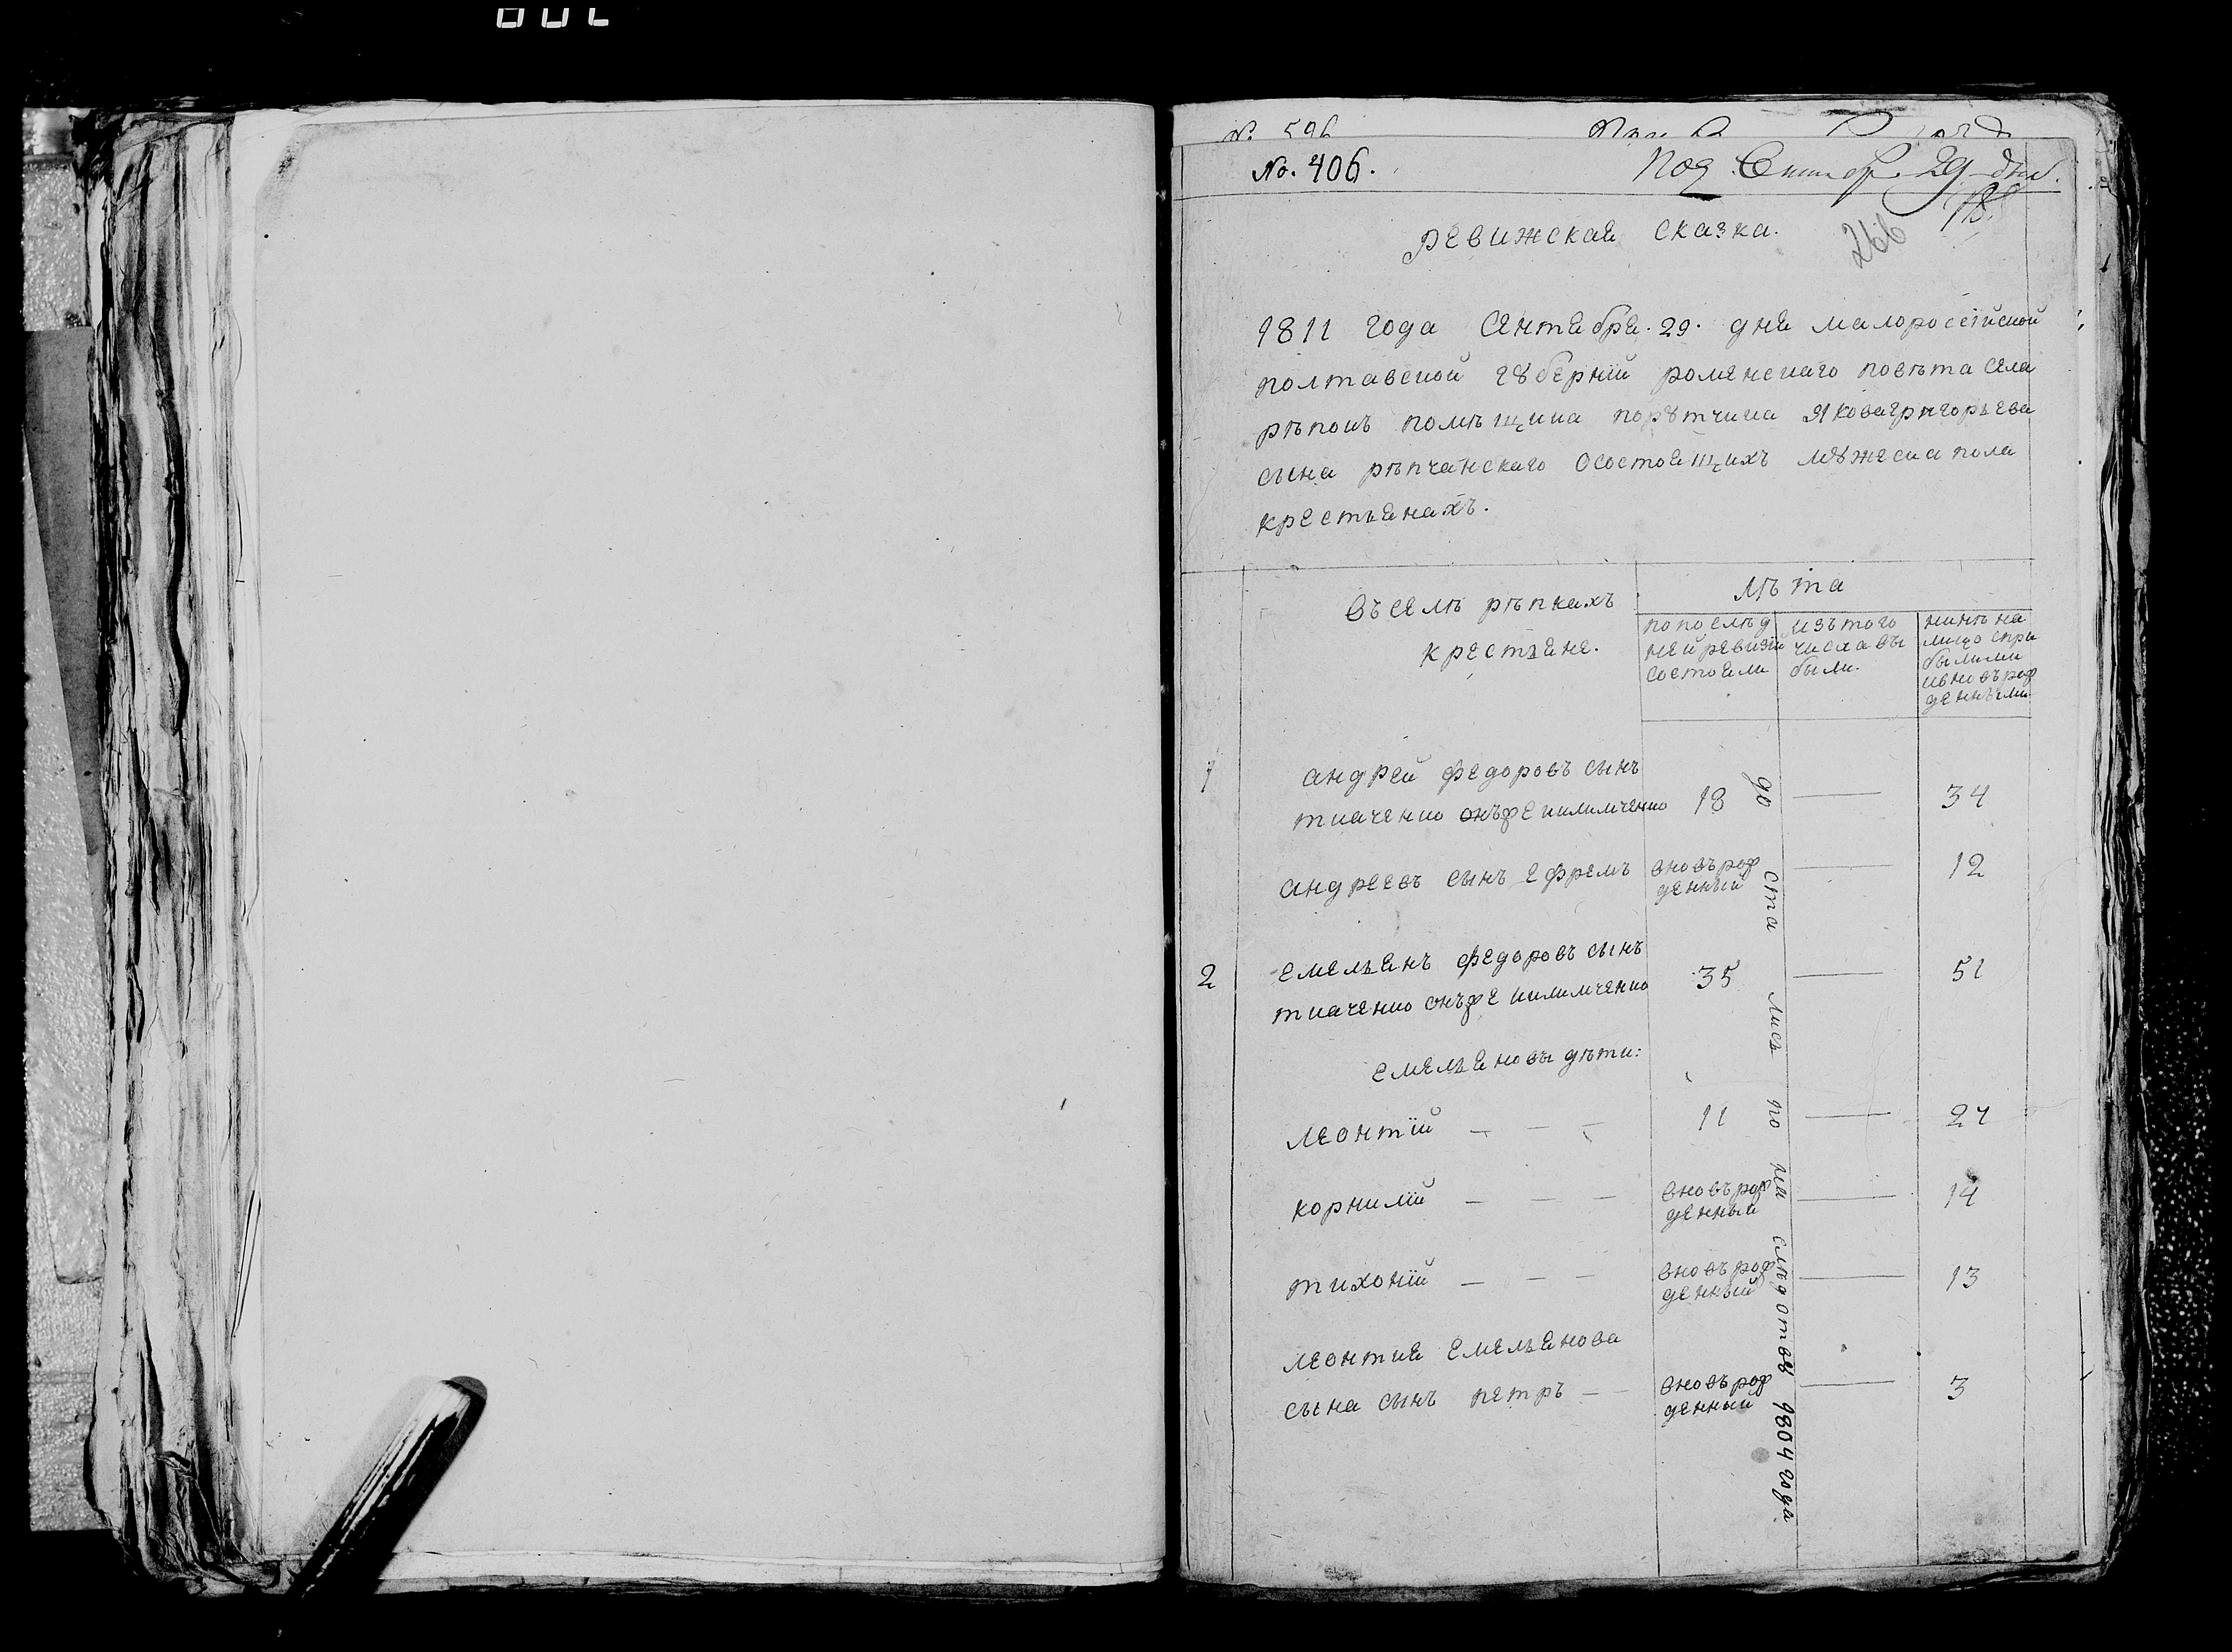 No. 406.
Под. Сентебр. 29 дня.
266
ревижская сказка.
1811 года Сентебря. 29. дня малороссійской
полтавской губерніи роменскаго повѣта села
рѣпокъ помѣщика порутчика Якова григорьева
сына рѣпчанскаго осостоящихъ мужеска пола
крестьянахъ.
въселѣ рѣпкахъ
крестьяне.
лѣта
попослѣд
ней ревизіи
состояли
изътого
числа вы
были.
нинѣ на
лицо спри
былими
ивновърож
денными
1
андрей федоровъ сынъ
ткаченко онъже килимченко
18
34
андреевъ сынъ ефремъ
вновърож
денный
12
2
емельянъ федоровъ сынъ
ткаченко онъже килимченко
35
51
емельяновы дѣти:
леонтій
11
27
корнилій
вновърож
денный
14
тихоній
вновърож
денный
13
леонтия емельянова
сына сынъ петръ
вновърож
денный
3
до ста лись по на слѣдству 1804 года